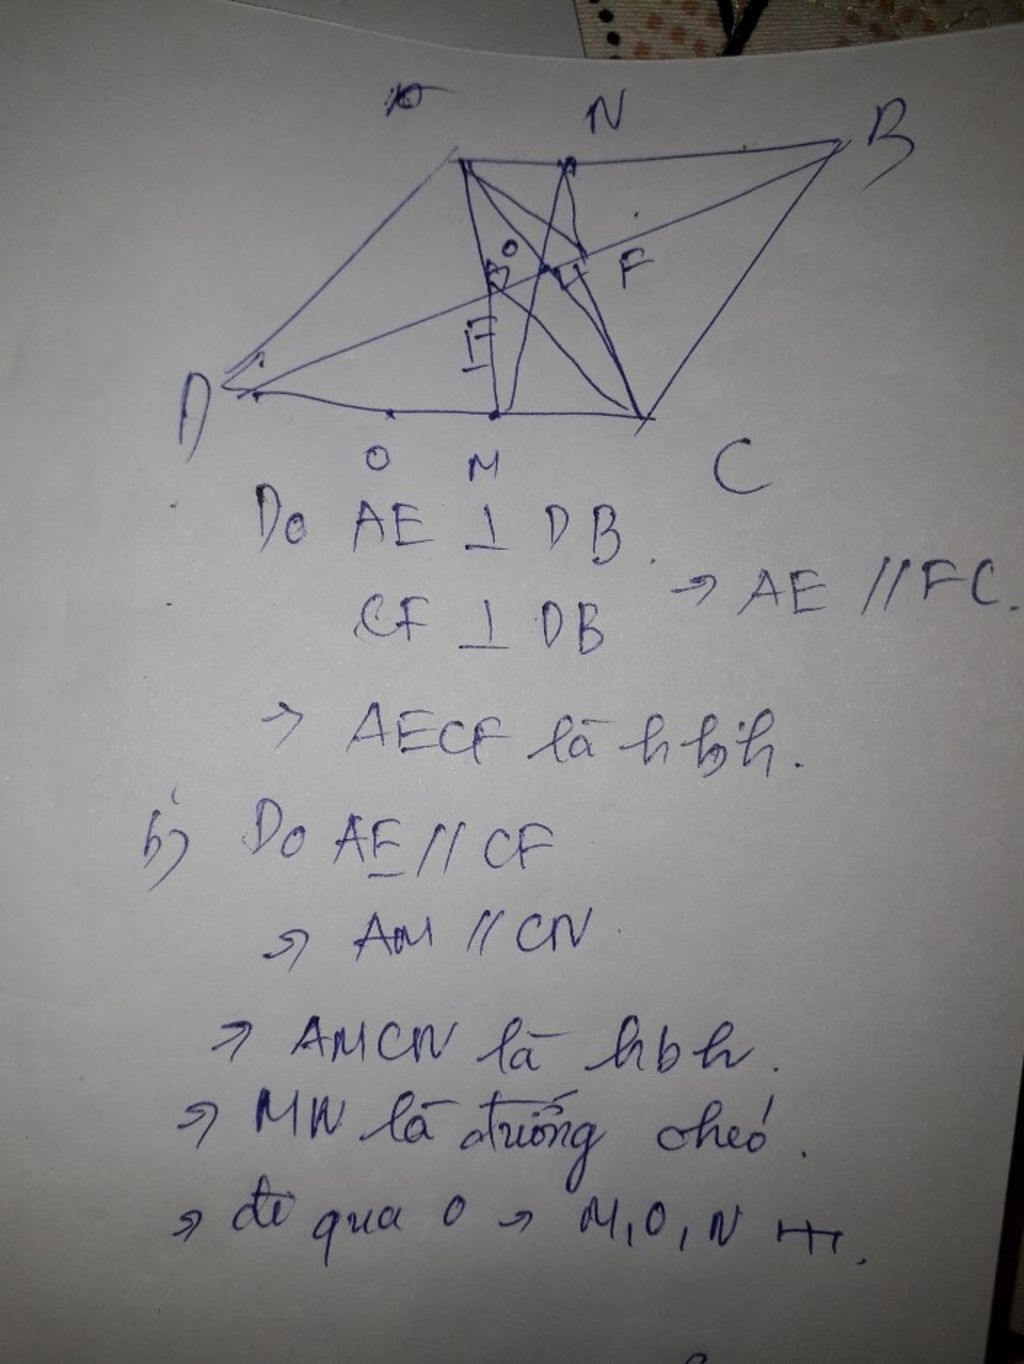 A N B
O
E F
D
O M C
Do AE ⊥ DB
CF ⊥ DB → AE // FC.
→ AECF là hbh.
b) Do AE // CF
→ AM // CN
→ AMCN là hbh.
→ MN là đường chéo.
→ đi qua O → M, O, N